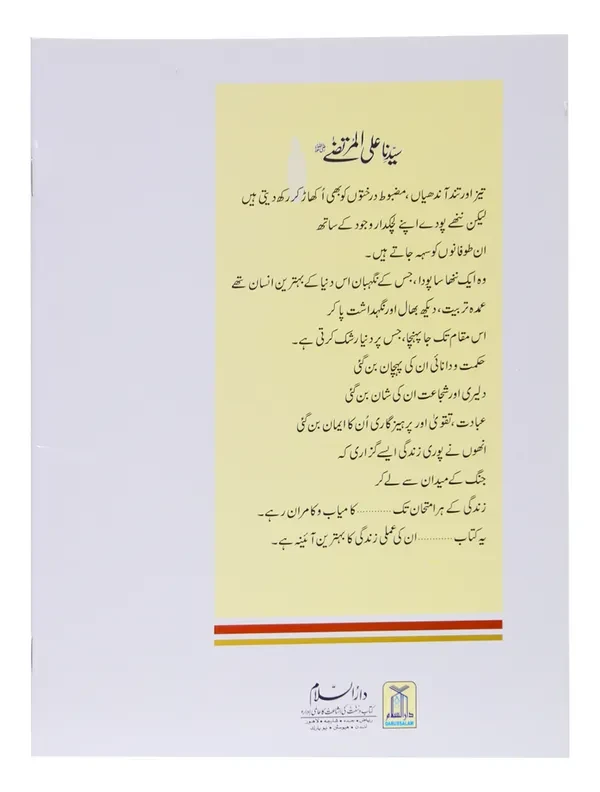 سیّدنا علی المرتضےٰ رضی اللہ عنہ
تیز اور تند آندھیاں، مضبوط درختوں کو بھی اُکھاڑ کر رکھ دیتی ہیں
لیکن ننھے پودے اپنے لچکدار وجود کے ساتھ
ان طوفانوں کو سہہ جاتے ہیں۔
وہ ایک ننھا سا پودا، جس کے نگہبان اس دنیا کے بہترین انسان تھے
عمدہ تربیت، دیکھ بھال اور نگہداشت پا کر
اس مقام تک جا پہنچا، جس پر دنیا رشک کرتی ہے۔
حکمت و دانائی ان کی پہچان بن گئی
دلیری اور شجاعت ان کی شان بن گئی
عبادت، تقویٰ اور پرہیزگاری اُن کا ایمان بن گئی
انھوں نے پوری زندگی ایسے گزاری کہ
جنگ کے میدان سے لے کر
زندگی کے ہر امتحان تک ............ کامیاب و کامران رہے۔
یہ کتاب ............ ان کی عملی زندگی کا بہترین آئینہ ہے۔
دارالسلام
کتاب و سنت کی اشاعت کا عالمی ادارہ
ریاض • جدہ • شارجہ • لاہور
لندن • ہیوسٹن • نیو یارک
دارالسلام
DARUSSALAM